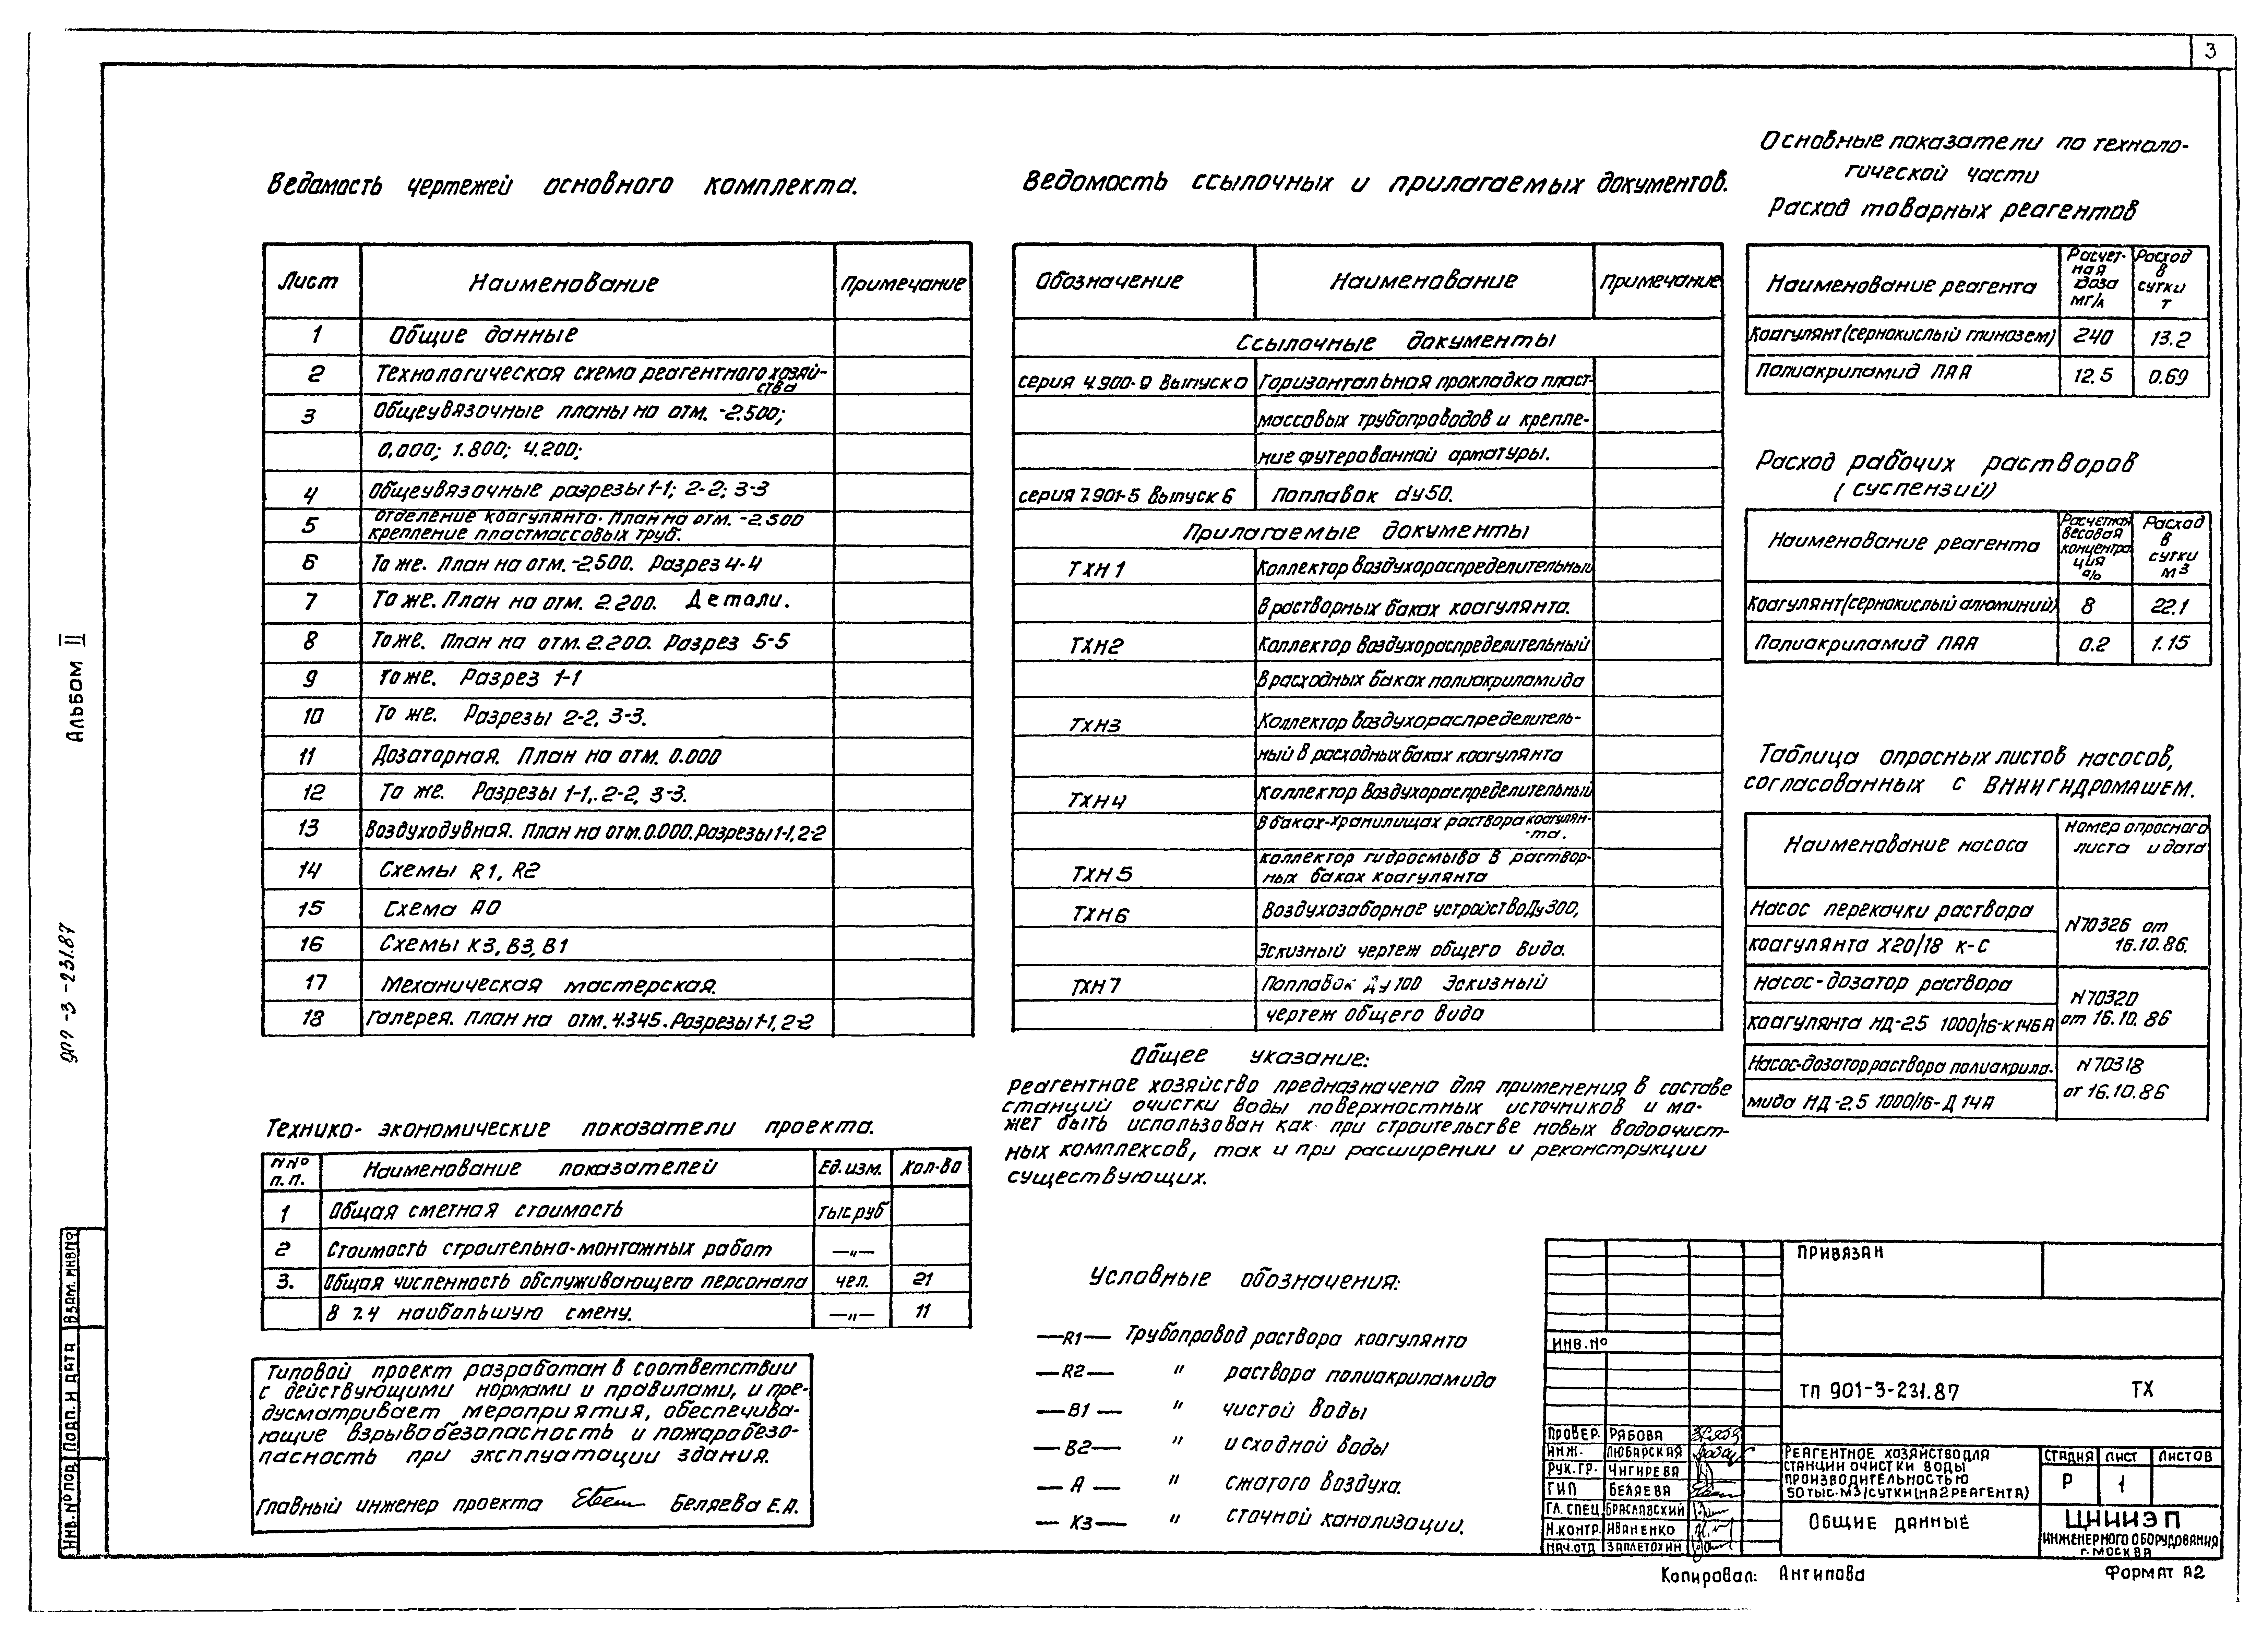 3
Ведомость чертежей основного комплекта.
Лист Наименование Примечание
1 Общие данные
2 Технологическая схема реагентного хозяй-
ства
3 Общеувязочные планы на отм. -2.500;
0,000; 1.800; 4.200;
4 Общеувязочные разрезы 1-1; 2-2; 3-3
5 Отделение коагулянта. План на отм. -2.500
крепление пластмассовых труб.
6 То же. План на отм. -2.500. Разрез 4-4
7 То же. План на отм. 2.200. Детали.
8 То же. План на отм. 2.200. Разрез 5-5
9 То же. Разрез 1-1
10 То же. Разрезы 2-2, 3-3.
11 Дозаторная. План на отм. 0.000
12 То же. Разрезы 1-1, 2-2, 3-3.
13 Воздуходувная. План на отм. 0.000. Разрезы 1-1, 2-2
14 Схемы R1, R2
15 Схема А0
16 Схемы К3, В3, В1
17 Механическая мастерская.
18 Галерея. План на отм. 4.345. Разрезы 1-1, 2-2
Технико-экономические показатели проекта.
NNº
п.п. Наименование показателей Ед. изм. Кол-во
1 Общая сметная стоимость тыс. руб
2 Стоимость строительно-монтажных работ —"—
3. Общая численность обслуживающего персонала чел. 21
В т.ч наибольшую смену. —"— 11
Типовой проект разработан в соответствии
с действующими нормами и правилами, и пре-
дусматривает мероприятия, обеспечива-
ющие взрывобезопасность и пожаробезо-
пасность при эксплуатации здания.
Главный инженер проекта Беляева Е.А.
Ведомость ссылочных и прилагаемых документов.
Обозначение Наименование Примечание
Ссылочные документы
серия 4.900-9 Выпуск 0 Горизонтальная прокладка пласт-
массовых трубопроводов и крепле-
ние футерованной арматуры.
серия 7.901-5 Выпуск 6 Поплавок dy50.
Прилагаемые документы
ТХН1 Коллектор воздухораспределительный
в растворных баках коагулянта.
ТХН2 Коллектор воздухораспределительный
в расходных баках полиакриламида
ТХН3 Коллектор воздухораспределитель-
ный в расходных баках коагулянта
ТХН4 Коллектор воздухораспределительный
в баках-хранилищах раствора коагулян-
-та.
ТХН5 коллектор гидросмыва в раствор-
ных баках коагулянта
ТХН6 Воздухозаборное устройство Ду300,
Эскизный чертеж общего вида.
ТХН7 Поплавок Ду100 Эскизный
чертеж общего вида
Общее указание:
реагентное хозяйство предназначено для применения в составе
станций очистки воды поверхностных источников и мо-
жет быть использован как при строительстве новых водоочист-
ных комплексов, так и при расширении и реконструкции
существующих.
Условные обозначения:
—R1— Трубопровод раствора коагулянта
—R2— " раствора полиакриламида
—В1— " чистой воды
—В2— " исходной воды
— А — " сжатого воздуха.
— К3— " сточной канализации.
Основные показатели по техноло-
гической части
Расход товарных реагентов
Наименование реагента Расчет-
ная
доза
мг/л Расход
в
сутки
т
Коагулянт (сернокислый глинозем) 240 13.2
Полиакриламид ПАА 12.5 0.69
Расход рабочих растворов
(суспензий)
Наименование реагента Расчетная
весовая
концентра
ция
% Расход
в
сутки
м3
Коагулянт (сернокислый алюминий) 8 22.1
Полиакриламид ПАА 0.2 1.15
Таблица опросных листов насосов,
согласованных с ВНИИГИДРОМАШЕМ.
Наименование насоса Номер опросного
листа и дата
Насос перекачки раствора
коагулянта Х20/18 К-С N70326 от
16.10.86.
Насос-дозатор раствора
коагулянта НД-2.5 1000/16-К14БА N70320
от 16.10.86
Насос-дозатор раствора полиакрила-
мида НД-2.5 1000/16-Д 14А N70318
от 16.10.86
ПРИВЯЗАН
ИНВ. Nº
ТП 901-3-231.87 ТХ
ПРОВЕР. РЯБОВА
ИНЖ. ЛЮБАРСКАЯ
РУК.ГР. ЧИГИРЕВА
ГИП БЕЛЯЕВА
ГЛ. СПЕЦ БРАСЛАВСКИЙ
Н.КОНТР. ИВАНЕНКО
НАЧ.ОТД ЗАПЛЕТОХИН
РЕАГЕНТНОЕ ХОЗЯЙСТВО ДЛЯ
СТАНЦИИ ОЧИСТКИ ВОДЫ
ПРОИЗВОДИТЕЛЬНОСТЬЮ
50 ТЫС. М3/СУТКИ (НА 2 РЕАГЕНТА)
СТАДИЯ ЛИСТ ЛИСТОВ
Р 1
ОБЩИЕ ДАННЫЕ
ЦНИИЭП
ИНЖЕНЕРНОГО ОБОРУДОВАНИЯ
Г. МОСКВА
Копировал: Антипова
ФОРМАТ А2
Альбом II
907-3-231.87
ИНВ. Nº ПОД. ПОДП. И ДАТА ВЗАМ. ИНВ Nº